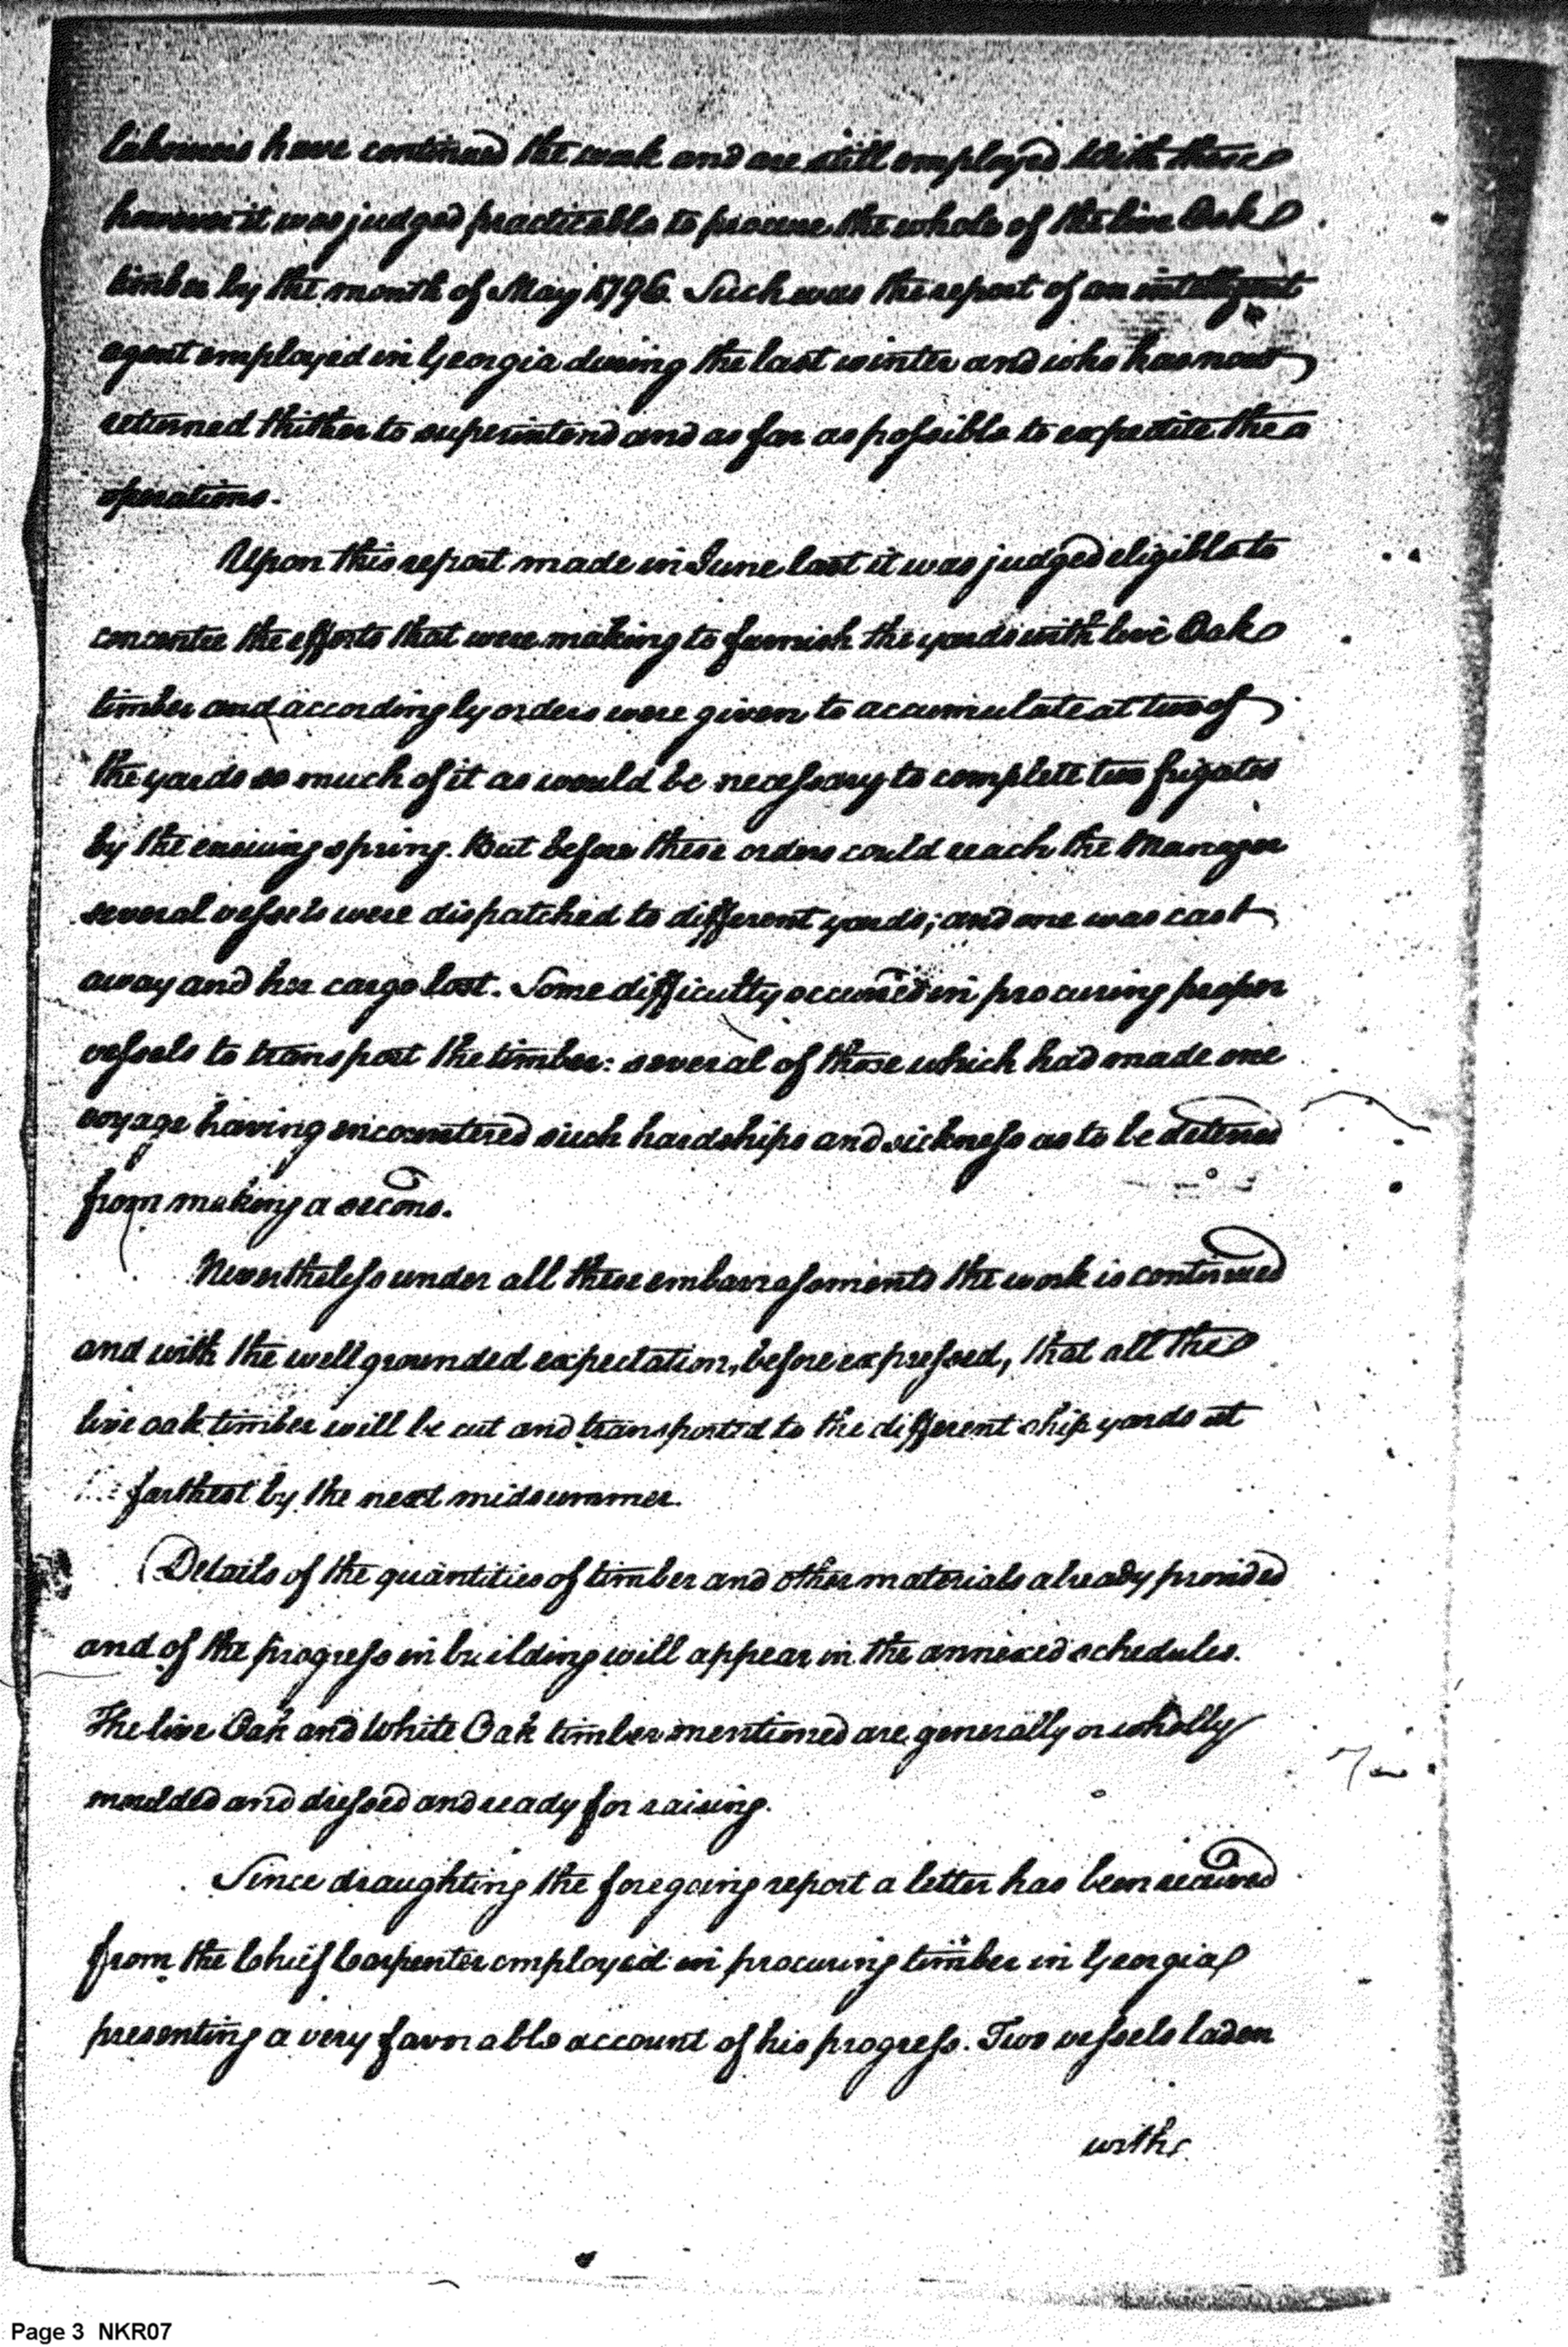 labourers have continued the work and are still employed With these
however it was judged practicable to procure the whole of the live Oak
timber by the month of May 1796. Such was the report of an intelligent
agent employed in Georgia during the last winter and who has now
returned thither to superintend and as far as possible to expedite the
operations.
Upon this report made in June last it was judged eligible to
concentre the efforts that were making to furnish the yards with live Oak
timber and accordingly orders were given to accumulate at two of
the yards so much of it as would be necessary to complete two frigates
by the ensuing spring. But before these orders could reach the Manager
several vessels were dispatched to different yards; and one was cast
away and her cargo lost. Some difficulty occurred in procuring proper
vessels to transport the timber: several of those which had made one
voyage having encountered such hardships and sickness as to be deterred
from making a second.
Nevertheless under all these embarrassments the work is continued
and with the well grounded expectation, before expressed, that all the
live oak timber will be cut and transported to the different ship yards at
farthest by the next midsummer.
Details of the quantities of timber and other materials already provided
and of the progress in building will appear in the annexed schedules.
The live Oak and White Oak timber mentioned are generally or wholly
moulded and dressed and ready for raising.
Since draughting the foregoing report a letter has been received
from the Chief Carpenter employed in procuring timber in Georgia
presenting a very favorable account of his progress. Two vessels laden
with
Page 3 NKR07